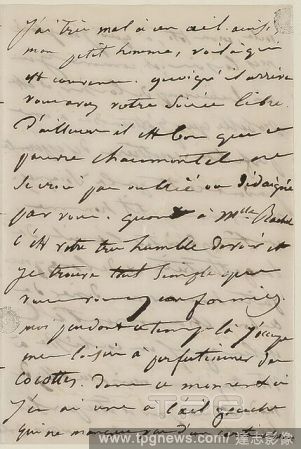 J'ai très mal à un œil ainsi,
mon petit homme, voilà qui
est convenu. quoiqu'il arrive
vous avez votre soirée libre.
D'ailleurs il est bon que ce
pauvre Chaumontel ne
se croie pas oublié ou dédaigné
par vous. quant à Mlle Rachel
c'est votre très humble
je trouve tout simple que
vous vous y conformiez.
mais pendant ce temps-là j'occupe
me loisir à perfectionner des
cocottes. dans ce moment-ci
j'en ai une à l'œil gauche
qui ne manque pas d'un certain
TPG
www.tpgnews.com 達志影像